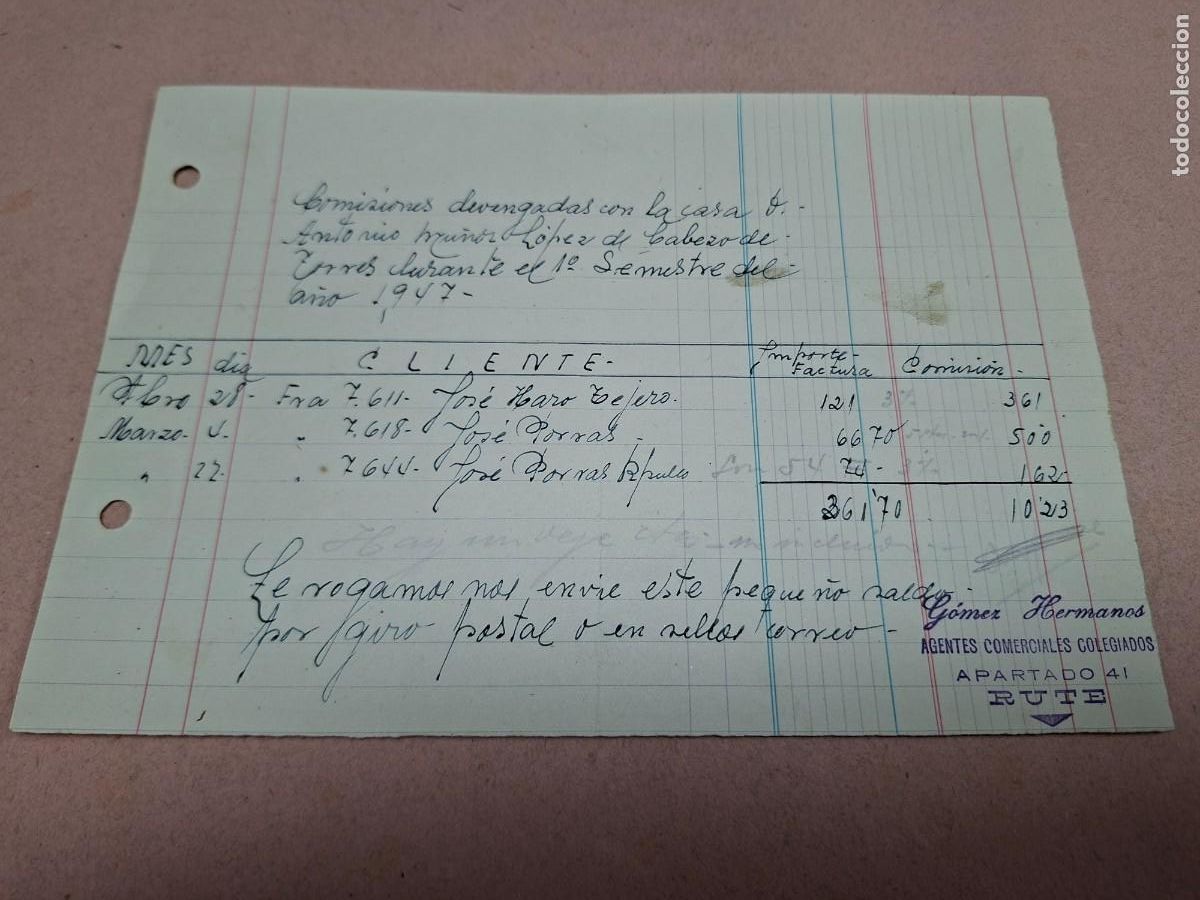 Comisiones devengadas con la casa D.-
Antonio Muñoz López de Cabezo de-
Torres durante el 1º Semestre del-
año 1,947-
MES dia CLIENTE- Importe-Factura Comisión-
Fbro 28- Fra 7.611- José Haro Tejero. 121 3% 361
Marzo- 4- " 7.618- José Porras- 66 70 5'00
" 22- " 7.644- José Porras 54 74- 3% 162-
361'70 10'23
Hay un
Le rogamos nos envie este pequeño saldo-
por giro postal o en sellos correo-
Gómez Hermanos
AGENTES COMERCIALES COLEGIADOS
APARTADO 41
RUTE
todocoleccion